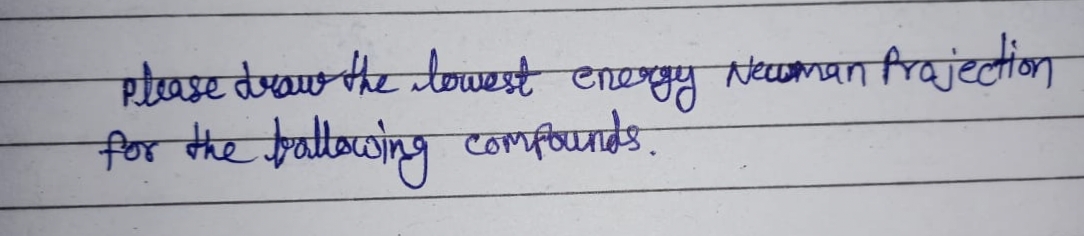 please draw the lowest energy Newman Prajection
for the fallowing compounds.